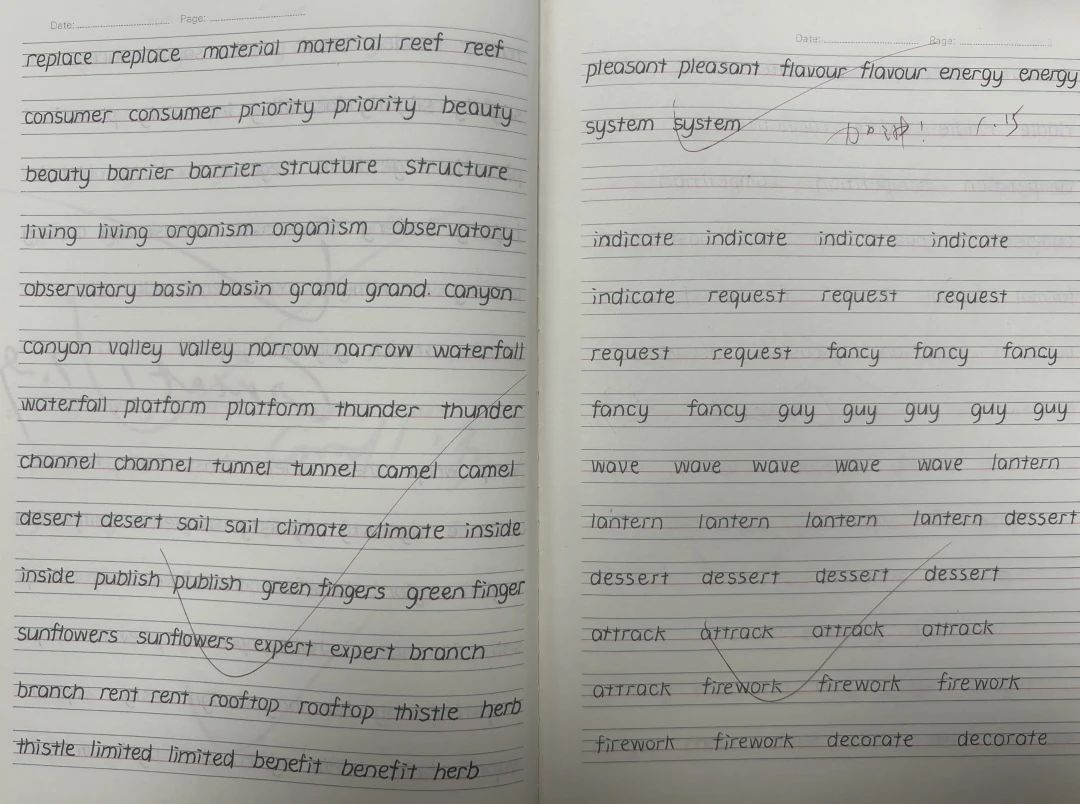 Date: Page:
replace replace material material reef reef
consumer consumer priority priority beauty
beauty barrier barrier structure structure
living living organism organism observatory
observatory basin basin grand grand. canyon
canyon valley valley narrow narrow waterfall
waterfall platform platform thunder thunder
channel channel tunnel tunnel camel camel
desert desert sail sail climate climate inside
inside publish publish green fingers green finger
sunflowers sunflowers expert expert branch
branch rent rent rooftop rooftop thistle herb
thistle limited limited benefit benefit herb
Date: Page:
pleasant pleasant flavour flavour energy energy
system system
indicate indicate indicate indicate
indicate request request request
request request fancy fancy fancy
fancy fancy guy guy guy guy guy
wave wave wave wave wave lantern
lantern lantern lantern lantern dessert
dessert dessert dessert dessert
attrack attrack attrack attrack
attrack firework firework firework
firework firework decorate decorate